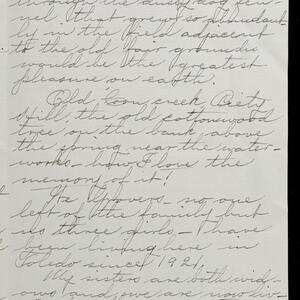 through the dusty dog fen-
nel that grew so abundant-
ly in the field adjacent
to the old fair grounds
would be the greatest
pleasure on earth.
Old Coon creek, Piety
Hill, the old cottonwood
tree on the bank above
the spring near the water-
works - how I love the
memory of it!
Its Upovers - no one
left of the family but
us three girls - I have
been living here in
Toledo since 1921.
My sisters are both wid-
ows and we are